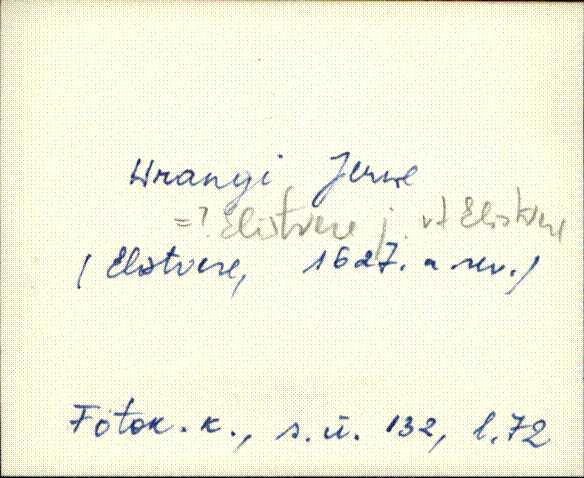 Wrangi Jerwe
=? Elistvere j. vt Elistvere
(Elistvere, 1627. a rev.)
Fotok. k., s. ü. 132, l. 72